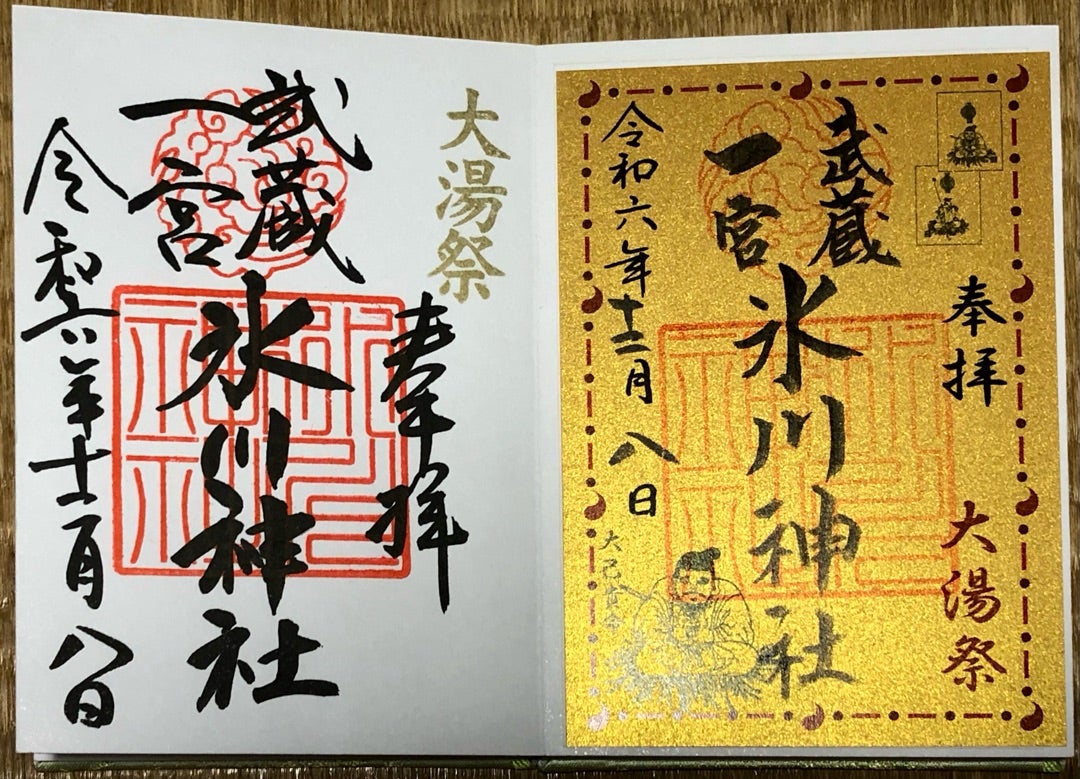 大湯祭
奉拝
武蔵
一宮
氷川神社
令和六年十二月八日
奉拝
大湯祭
武蔵
一宮
氷川神社
令和六年十二月八日
大己貴命